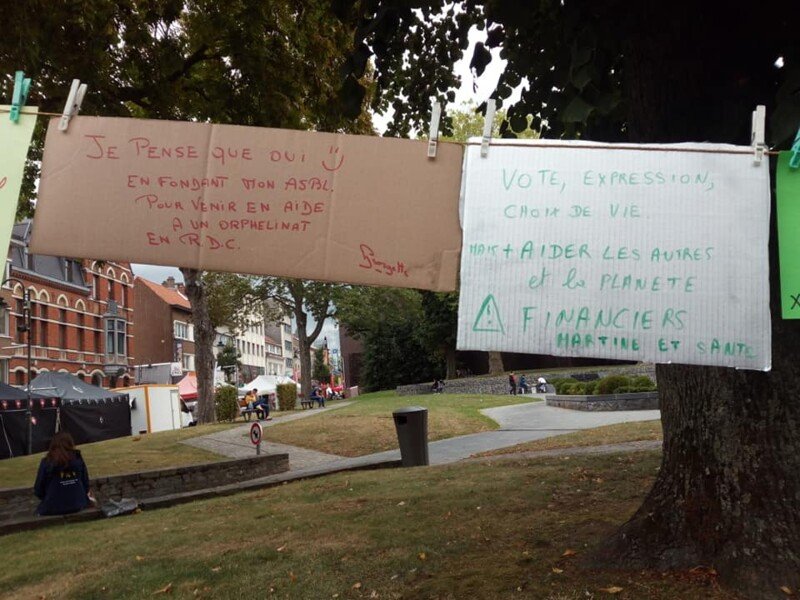 JE PENSE QUE OUI
EN FONDANT MON ASBL.
POUR VENIR EN AIDE
A UN ORPHELINAT
EN R.D.C.
Georgette
VOTE, EXPRESSION,
CHOIX DE VIE.
MAIS + AIDER LES AUTRES
et la PLANETE
FINANCIERS
MARTINE ET SANTE